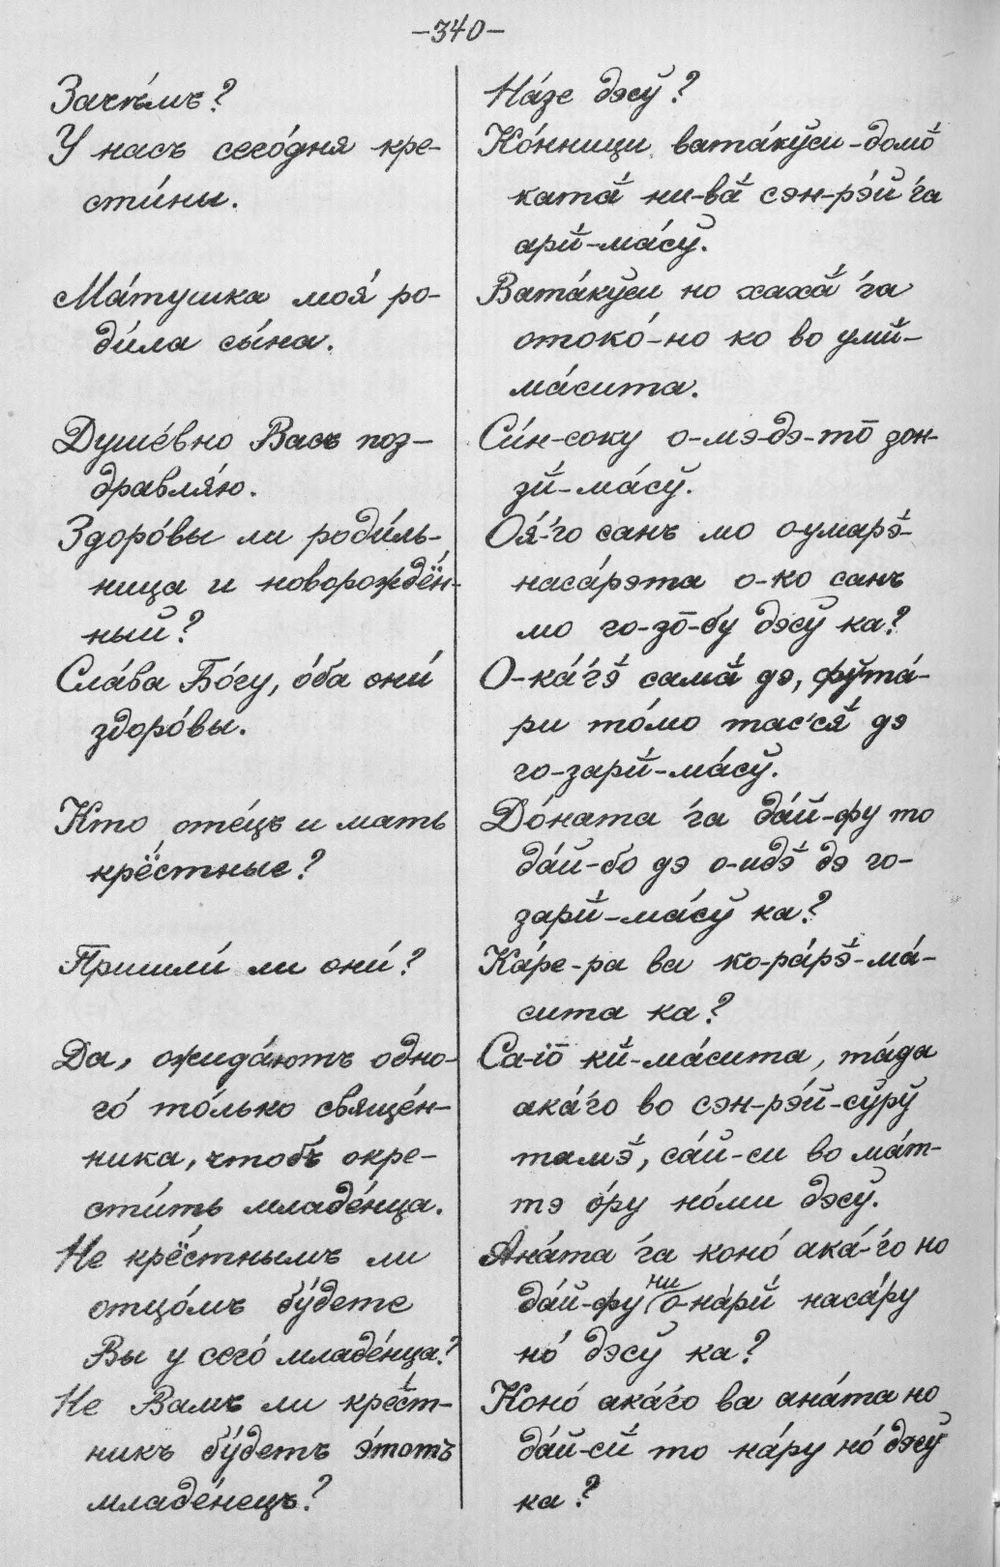 –340–
Зачѣ́мъ?
У насъ сего́дня кре-
сти́ны.
Ма́тушка моя́ ро-
ди́ла сы́на.
Душе́вно Васъ поз-
дравля́ю.
Здоро́вы ли роди́ль-
ница и новорождё́н-
ный?
Сла́ва Бо́гу, о́ба они́
здоро́вы.
Кто оте́цъ и мать
крё́стные?
Пришли́ ли они́?
Да, ожида́ютъ одно-
го́ то́лько свяще́н-
ника, чтобъ окре-
сти́ть младе́нца.
Не крё́стнымъ ли
отцо́мъ бу́дете
Вы у сего́ младе́нца?
Не Вамъ ли крё́ст-
никъ бу́детъ э́тотъ
младе́нецъ?
На́зе дэсў?
Ко́нници ватӑ́кўси-домо̆́
катӑ́ ни-вӑ́ сэн-рэ́й ’га
арӣ́-ма́сў.
Вата́кўси но хахӑ́ ’га
отоко́-но ко во умӣ́-
ма́сита.
Си́н-соку о-мэ-дэ-то̄ зон-
зӣ́-ма́сў.
Оя́-’го санъ мо о-умарэ̆́-
наса́рэта о-ко санъ
мо го-зо̄-бу дэсў ка?
О-ка́’гэ̆́ самӑ́ дэ, фўта́-
ри то́мо тас’ся̆́ дэ
го-зарӣ́-ма́сў.
До́ната ’га да́й-фу то
да́й-бо дэ о-идэ̆́ дэ го-
зарӣ́-ма́сў ка?
Ка́ре-ра ва ко-ра́рэ̆́-ма́-
сита ка?
Са-iо̄ кӣ-ма́сита, та́да
ака́’го во сэн-рэ́й-сўрў
тамэ̆́, са́й-си во ма́т-
тэ о́ру но́ми дэсў.
Ана́та ’га коно́ ака́-’го но
да́й-фу ни о-на́рӣ наса́ру
но́ дэсў ка?
Коно́ ака́’го ва ана́та но
да́й-сӣ то на́ру но́ дэсў
ка?